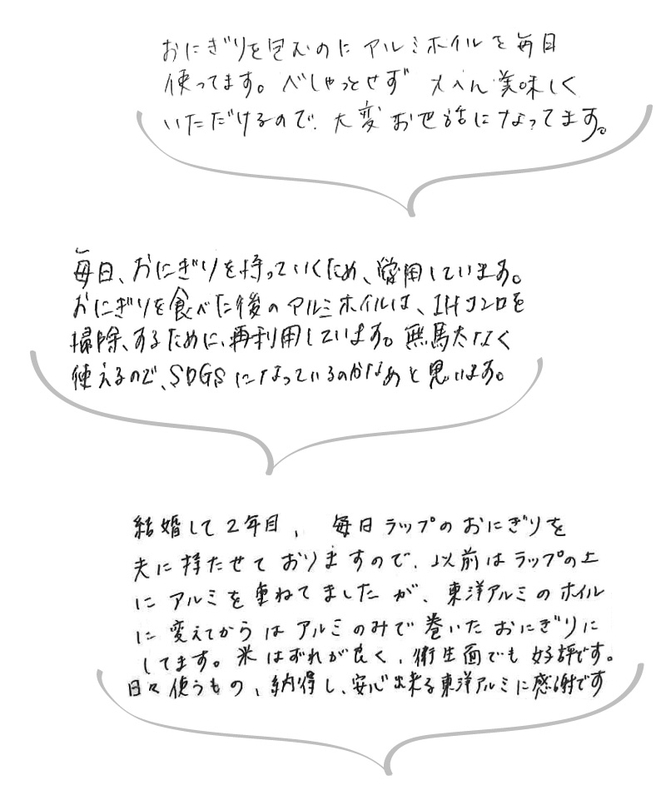 おにぎりを包むのに アルミホイルを毎日
使ってます。べしゃっとせず 大へん美味しく
いただけるので、大変お世話になってます。
毎日、おにぎりを持っていくため、常用しています。
おにぎりを食べた後のアルミホイルは、IHコンロを
掃除、するために、再利用しています。無駄なく
使えるので、SDGSになっているのかなあと思います。
結婚して2年目、毎日ラップのおにぎりを
夫に持たせておりますので、以前はラップの上
にアルミを重ねてましたが、東洋アルミのホイル
に変えてからはアルミのみで巻いたおにぎりに
してます。米はずれが良く、衛生面でも好評です。
日々使うもの、納得し、安心出来る東洋アルミに感謝です